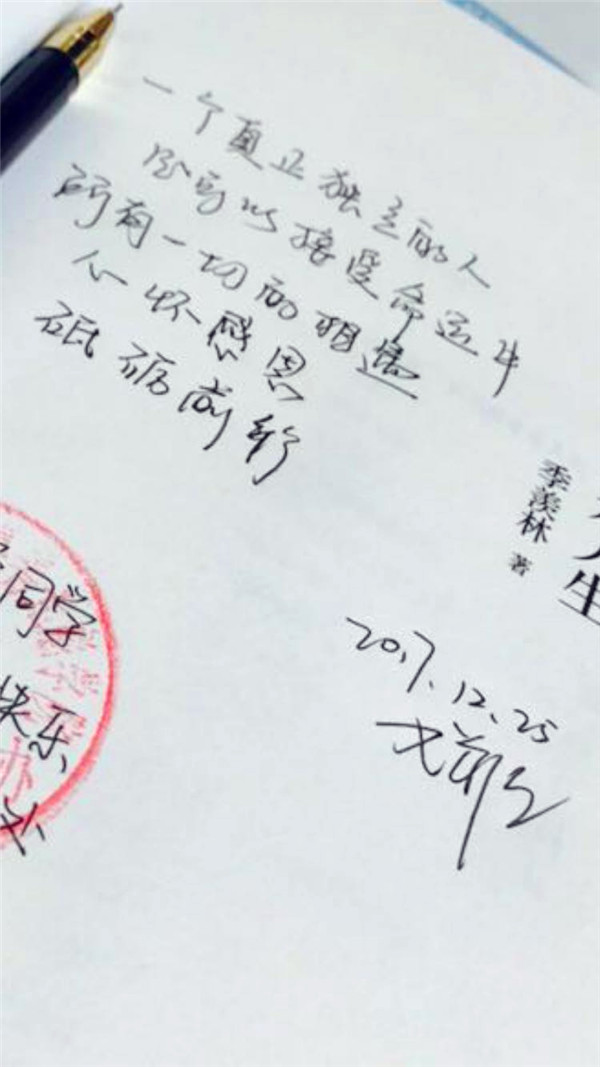 一个真正独立的人
必可以接受命运中
所有一切的相遇
心怀感恩
砥砺前行
人生
季羡林 著
同学
快乐
办
2017.12.25